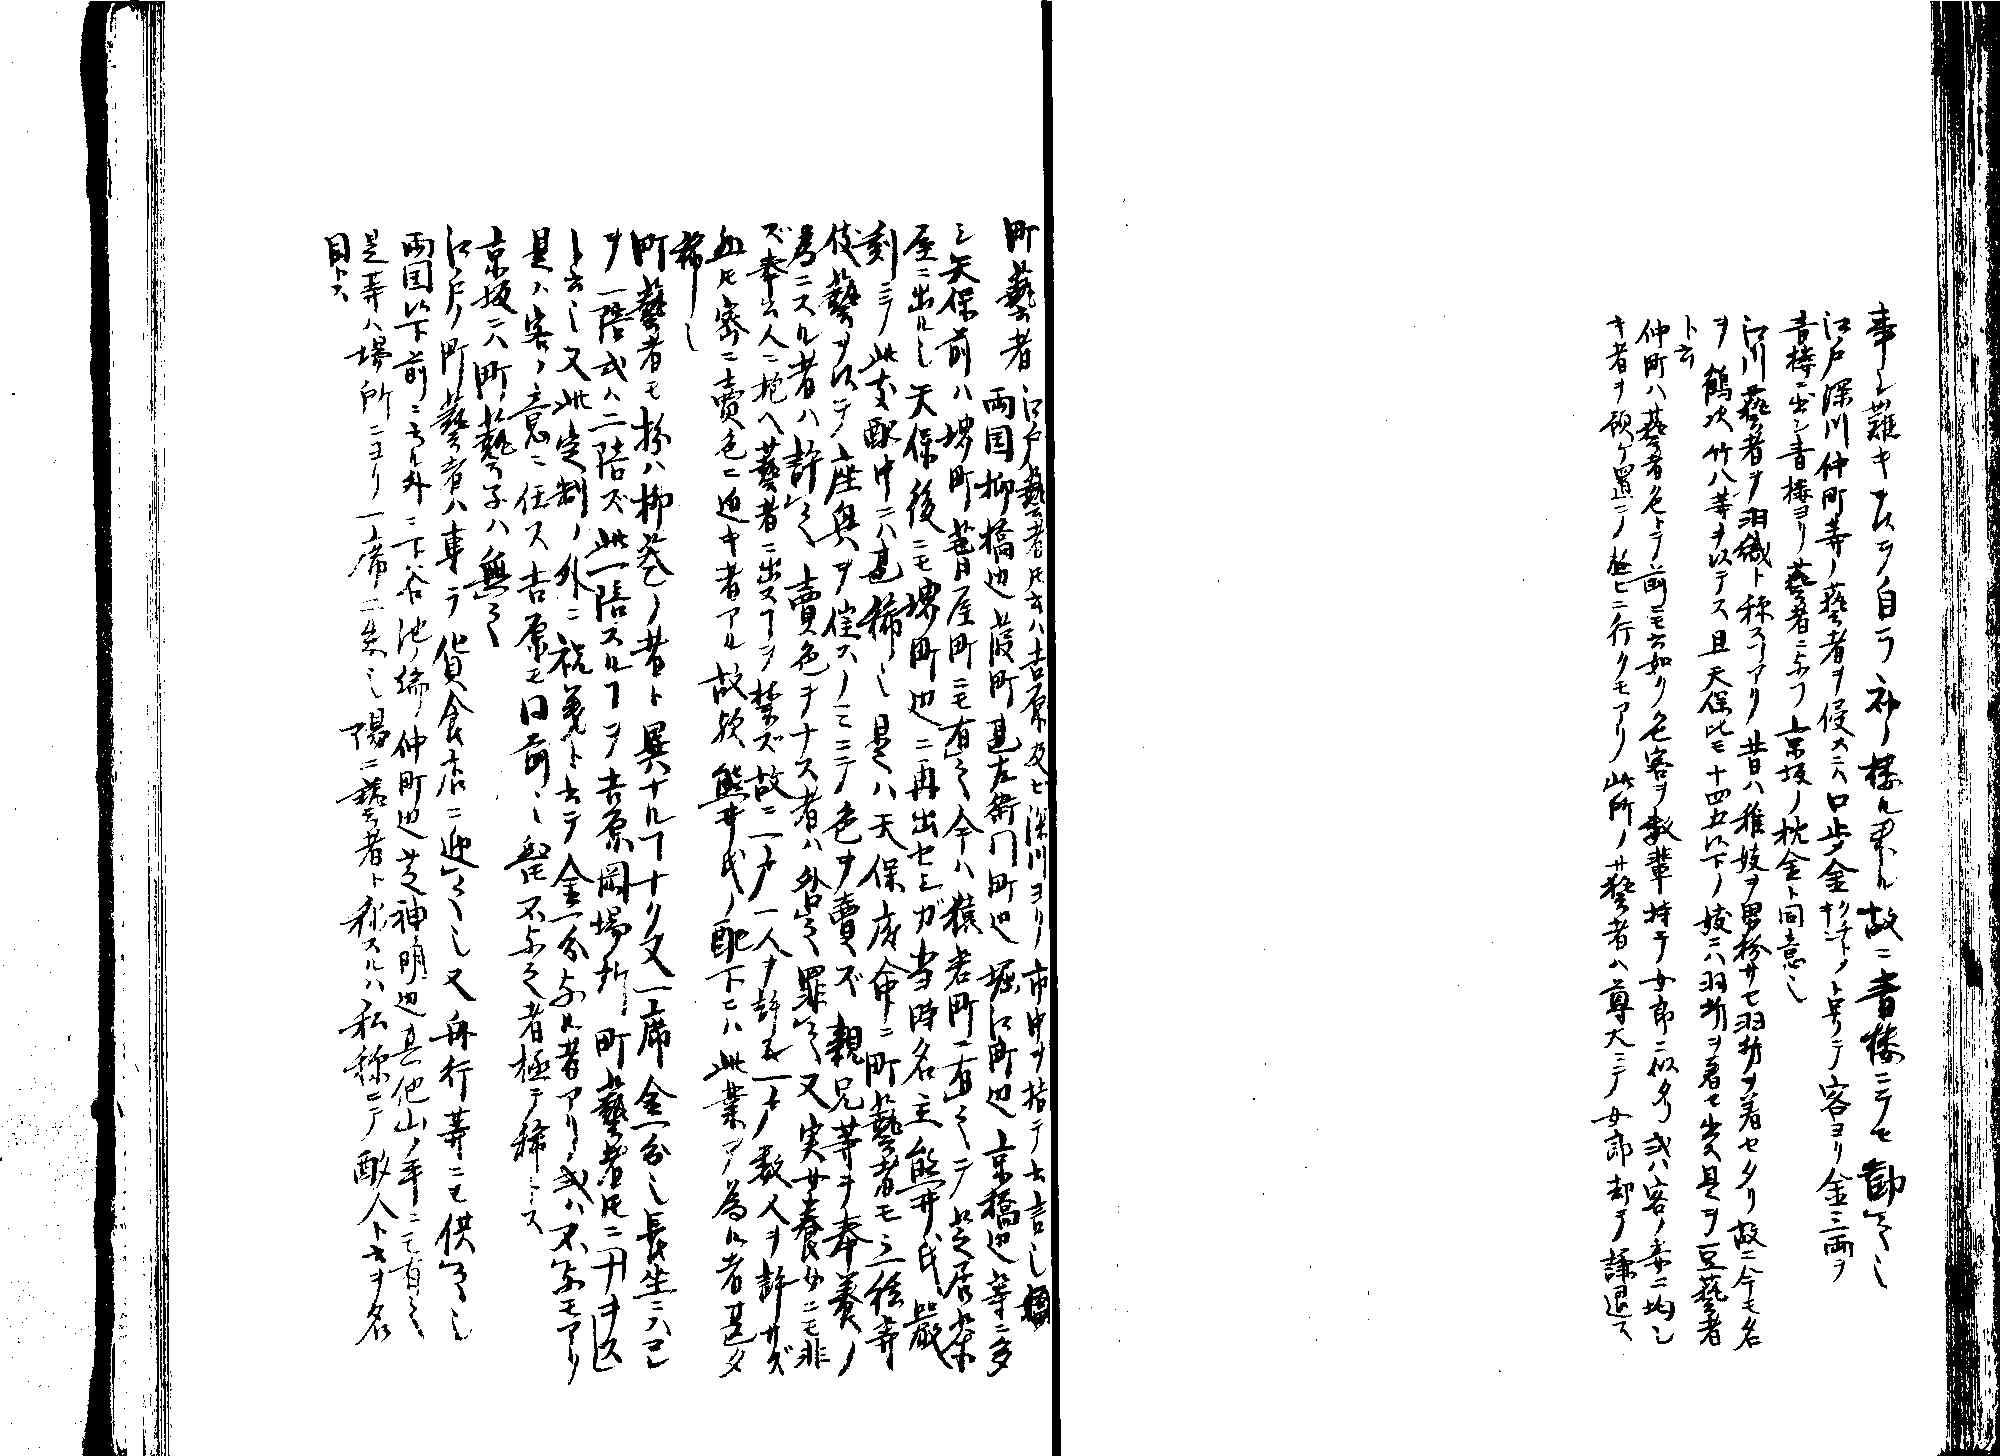 事シ難キヲ以テ自ラ神ノ様ル来ル故ニ青楼ニテモ勧之シ
江戸深川仲町等ノ藝者ヲ侵スニハ口歩金ト号テ客ヨリ金三両ヲ
青楼ニ出シ青楼ヨリ藝者ニ与フ京坂ノ枕金ト同意シ
江川藝者ヲ羽織ト称スヿアリ昔ハ稚妓ヲ男扮サセ羽折ヲ着セタリ故ニ今モ名
ヲ鶴次竹八等ヲ以テス且天保比モ十四五以下ノ妓ニハ羽折ヲ着セ出ス是ヲ豆藝者
ト云
仲町ハ藝者色トテ前ニモ云如ク色客ヲ数輩持テ女郎ニ似タリ或ハ客ノ妻ニ均シ
キ者ヲ預ケ置テ遊ヒニ行クモアリ此所ノ女藝者ハ尊大ニテ女郎却テ謙退ス
町藝者 江戸藝者トモ云ハ吉原及ヒ深川ヨリ市中ヲ指テ云言シ
両国柳橋辺葭町甚左衛門町辺堀江町辺京橋辺等ニ多
シ天保前ハ堺町葺屋町ニモ有之今ハ猿若町ニ有之テ芝居茶
屋ニ出ルシ天保後ニモ堺町辺ニ再出セシガ当時名主熊井氏嚴
刻ニテ此支配中ニハ甚稀シ是ハ天保府命ニ町藝者モ三絃等
伎藝ヲ以テ座興ヲ催スノミニテ色ヲ賣ズ親兄等ヲ奉養ノ
為ニスル者ハ許之賣色ヲナス者ハ咎之罪之又実女養女ニモ非
ズ奉公人ニ抱ヘ藝者ニ出スヿヲ禁ズ故ニ一戸一人ヲ許シ一戸数人ヲ許サズ
然トモ密ニ賣色ニ迫キ者アル故欤熊井氏ノ配下ニハ此業ヲ為ル者甚タ
稀シ
町藝者モ扮ハ柳巷ノ者ト異ナルヿナク又一席金一分シ長坐ニハ已
ヲ一倍或ハ二倍ズ此一倍スルヿヲ吉原岡場所町藝者トモニナヲス
ト云シ又此定制ノ外ニ祝義ト云テ金一分与ル者アリ或ハ不与モアリ
是ハ客ノ意ニ任ス吉原モ同前シ然トモ不与之者極テ稀トス
京坂ニハ町藝子ハ無之
江戸ノ町藝者ハ専ラ貨食店ニ迎之シ又舟行等ニモ供之シ
両国以下前ニ云ル外ニ下谷池ノ端仲町辺芝神明辺其他山ノ手ニモ有之
是等ハ場所ニヨリ一席ニ朱シ陽ニ藝者ト称スルハ私称ニテ酌人ト云ヲ名
目トス